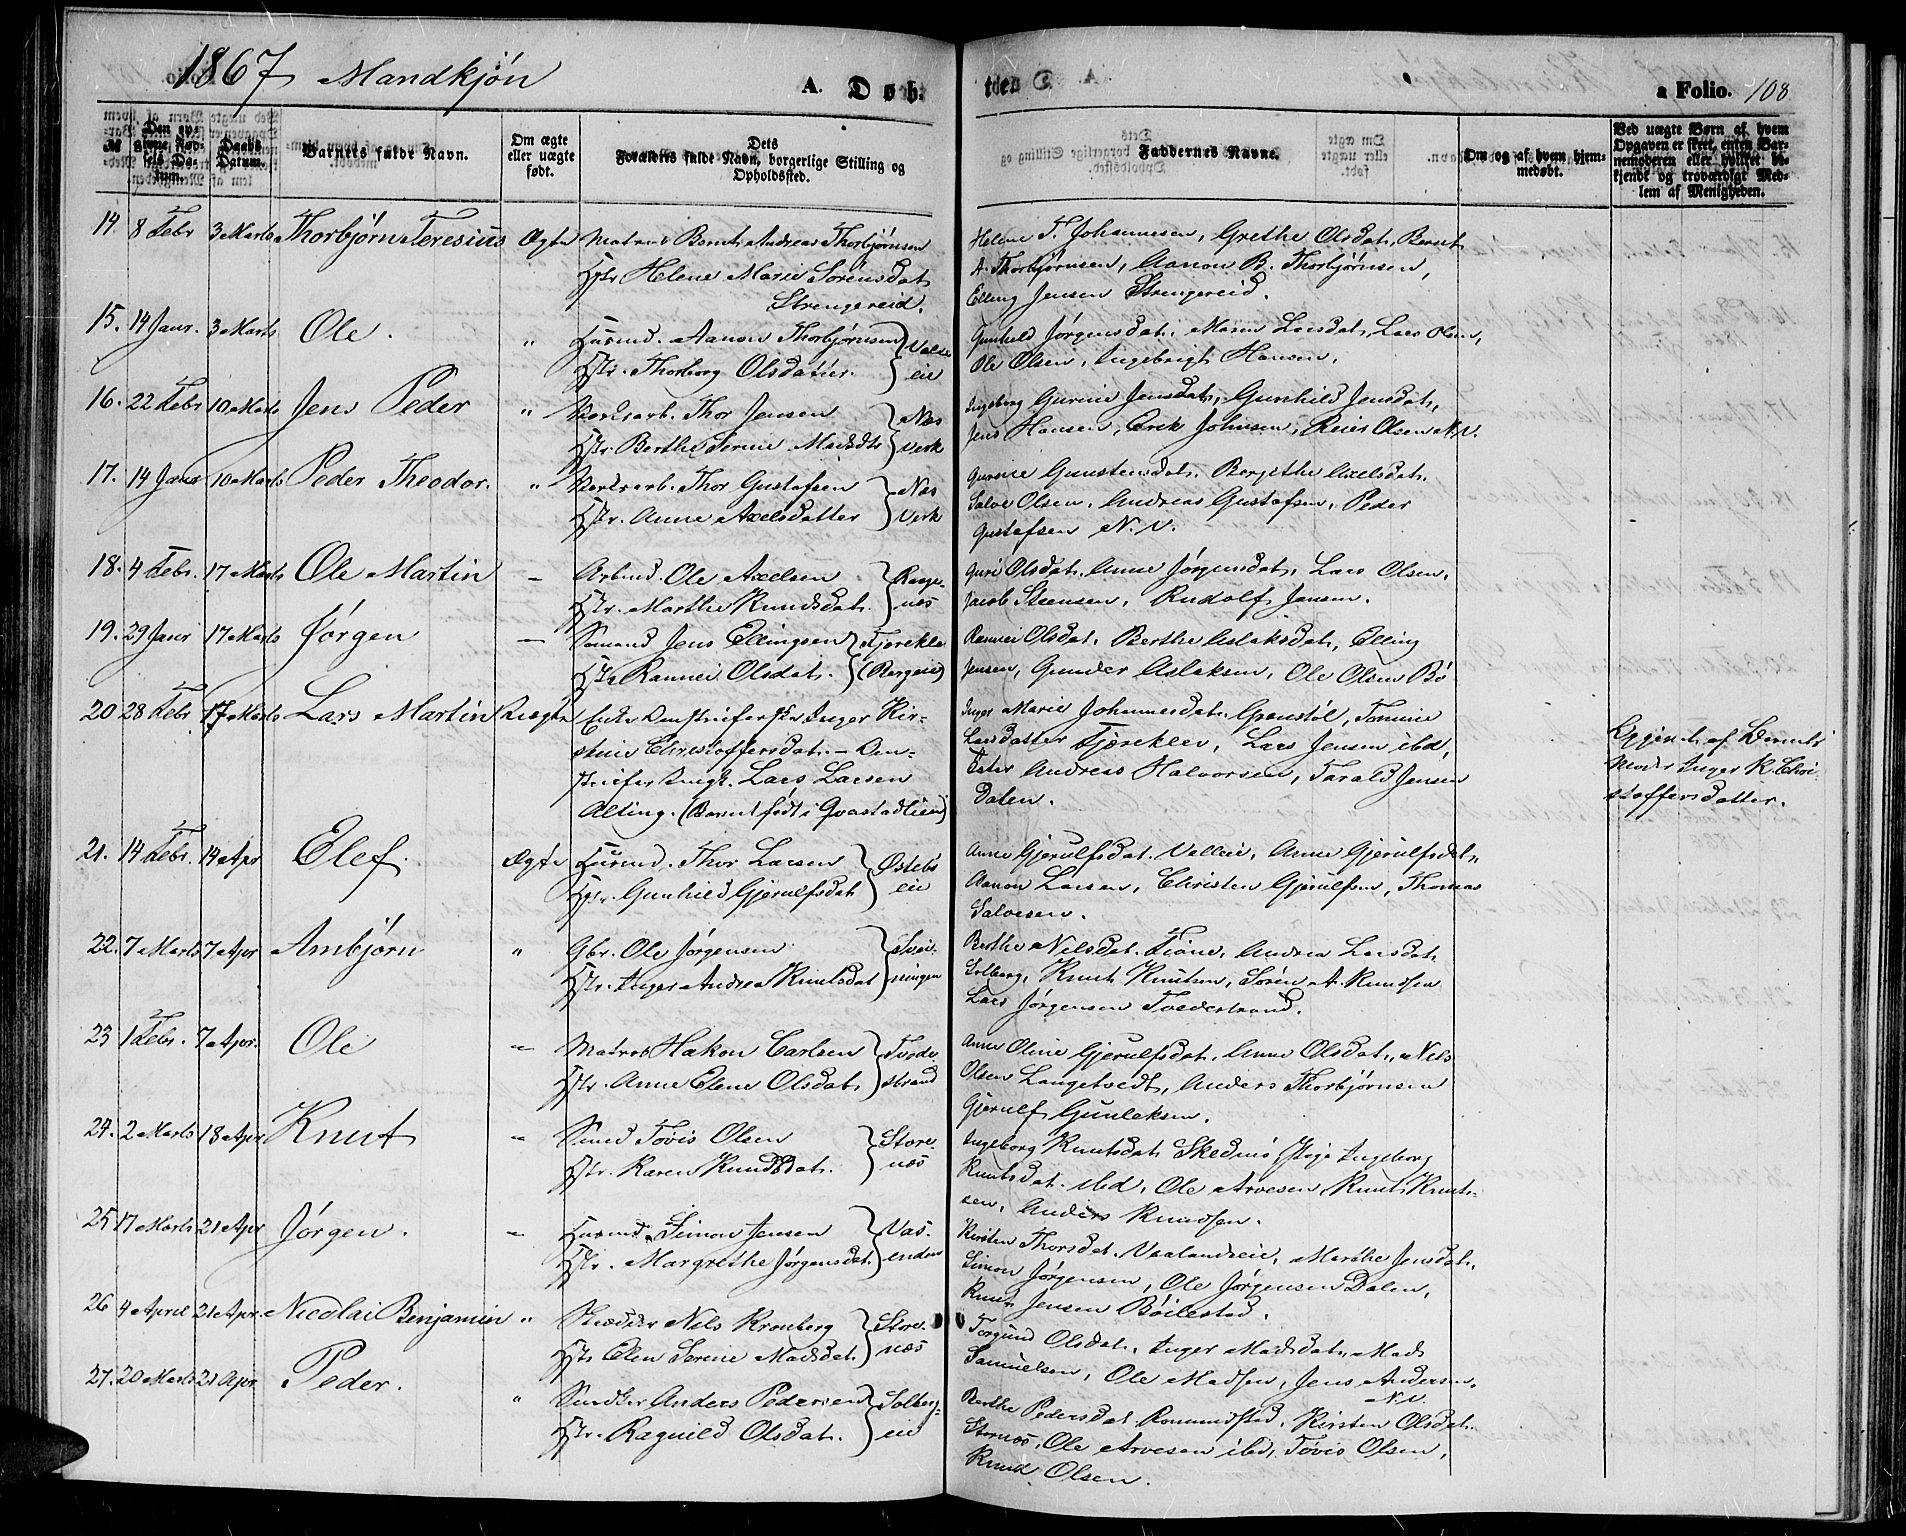 1867 Mandkjön
A. Døb-
te.
a Folio. 108
№
Den opgivne Fødsels Datum.
Daabs Datum.
Barnets fulde Navn.
Om ægte eller uægte født.
Dets Forældres fulde Navn, borgerlige Stilling og Opholdssted.
Faddernes Navne.
Om og af hvem hjemmedøbt.
Ved uægte Børn af hvem Opgaven er skeet, enten Barnemoderen eller hvilket bekjendt og troværdigt Medlem af Menigheden.
14. 8 Febr 3 Marts Thorbjørn Teresius Ægte Matros Bernt Andreas Thorbjørnsen
Hstr Helene Marie Sørensdat.
Strengereid.
Helene T. Johannesen, Grethe Olsdat, Bernt
A. Thorbjørnsen, Aanon B. Thorbjørnsen,
Elling Jensen Strengereid.
15. 14 Janr. 3 Marts Ole. " Husmd. Aanon Thorbjørnsen
Hstr. Thorborg Olsdatter. Valleeie
Gunhild Jørgensdat. Maren Larsdat, Lars Olsen,
Ole Olsen, Ingebrigt Hansen.
16. 22 Febr 10 Marts Jens Peder " Verksarb. Thor Jensen
Hstr. Berthe Serine Madsdtr Næs Verk
Ingeborg Gurine Jensdat, Gunhild Jensdat,
Jens Hansen, Erik Johnsen, Reier Olsen N.V.
17. 14 Janr 10 Marts Peder Theodor. " Verksarb. Thor Gustafsen
Hstr. Anne Axelsdatter Næs Verk
Gurine Gunstensdat. Bergithe Axelsdat.
Salve Olsen, Andreas Gustafsen, Peder
Gustafsen N. V.
18. 4 Febr. 17 Marts Ole Martin - Arbmd. Ole Axelsen
Hstr. Marthe Knudsdat.
Guri Olsdat. Anne Jørgensdat, Lars Olsen,
Jacob Steensen, Rudolf Jensen.
19. 29 Janr 17 Marts Jørgen - Sømand Jens Ellingsen
Hstr Rannei Olsdat. Fjerekle
Rannei Olsdat. Berthe Aslaksdat, Elling
Jensen, Gunder Aslaksen, Ole Olsen Bø
20 28 Febr 17 Marts Lars Martin Uægte Enke Inger Kir-
stine Christoffersdat.
Lars Larsen
Alting. (Barnet født i Qvastadlien)
Inger Marie Johannesdat. Grønstøl, Tomine
Larsdatter Fjæreklev, Lars Jensen ibd,
Andreas Halvorsen, Tarald Jensen
Dalen.
Opgivet af Barnets
Moder Inger K. Chri-
stoffersdatter.
21. 14 Febr. 14 Apr Elef. Ægte Husmd. Thor Larsen
Hstr. Gunhild Gjerulfsdat Østebø eie
Anne Gjerulfsdat. Valleie, Anne Gjerulfsdat.
Aanon Larsen, Christen Gjerulfsen, Thomas
Salvesen.
22. 7 Marts 7 Apr Ambjørn " Gbr. Ole Jørgensen
Hstr. Inger Andrea Knutsdat Sveiningen
Berthe Nilsdat. Fiane, Andrea Larsdat.
Solberg, Knut Knutsen, Søren A. Knudsen
Lars Jørgensen Tvedestrand.
23 1 Febr. 7 Apr. Ole - Matros Hakon Carlsen
Hstr. Anne Elene Olsdat. Tvedestrand
Anne Oline Gjerulfsdat. Anne Olsdat, Nils
Olsen Langetvedt, Anders Thorbjørnsen
Gjerulf Gunleksen.
24. 2 Marts 18 Apr Knut - Smed Tovis Olsen
Hstr. Karen Knudsdat. Storenæs
Ingeborg Knutsdat. Skedmo, Pige Ingeborg
Knutsdat. ibd, Ole Arvesen, Knut Knut-
sen, Anders Knudsen.
25 17 Marts 21 Apr Jørgen. - Husmd. Simon Jensen
Hstr. Margrethe Jørgensdat. Vasenden
Kirsten Thorsdat. Vaalandseie, Marthe Jensdat.
Simon Jørgensen, Ole Jørgensen Dalen,
Knut Jensen Böilestad.
26 4 April 21 Apr. Nicolai Benjamin " Skrædder Nils Kronberg
Hstr Elen Serine Madsdat. Storenæs
Torgund Olsdat. Inger Madsdat. Mads
Samuelsen, Ole Madsen, Jens Andersen.
N.V.
27. 20 Marts 21 Apr Peder. " Snedker Anders Pedersen
Hstr. Ragnild Olsdat. Solbergeie
Berthe Pedersdat. Rommestad, Kirsten Olsdat.
Stornæs, Ole Arvesen ibd, Tovis Olsen,
Knud Olsen.